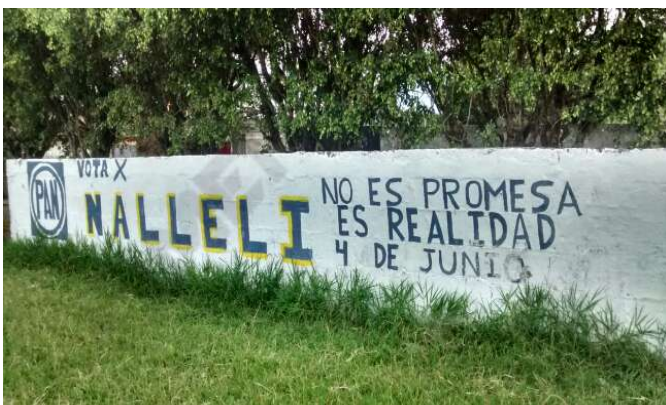 PAN
VOTA X
NALLELI
NO ES PROMESA
ES REALIDAD
4 DE JUNIO